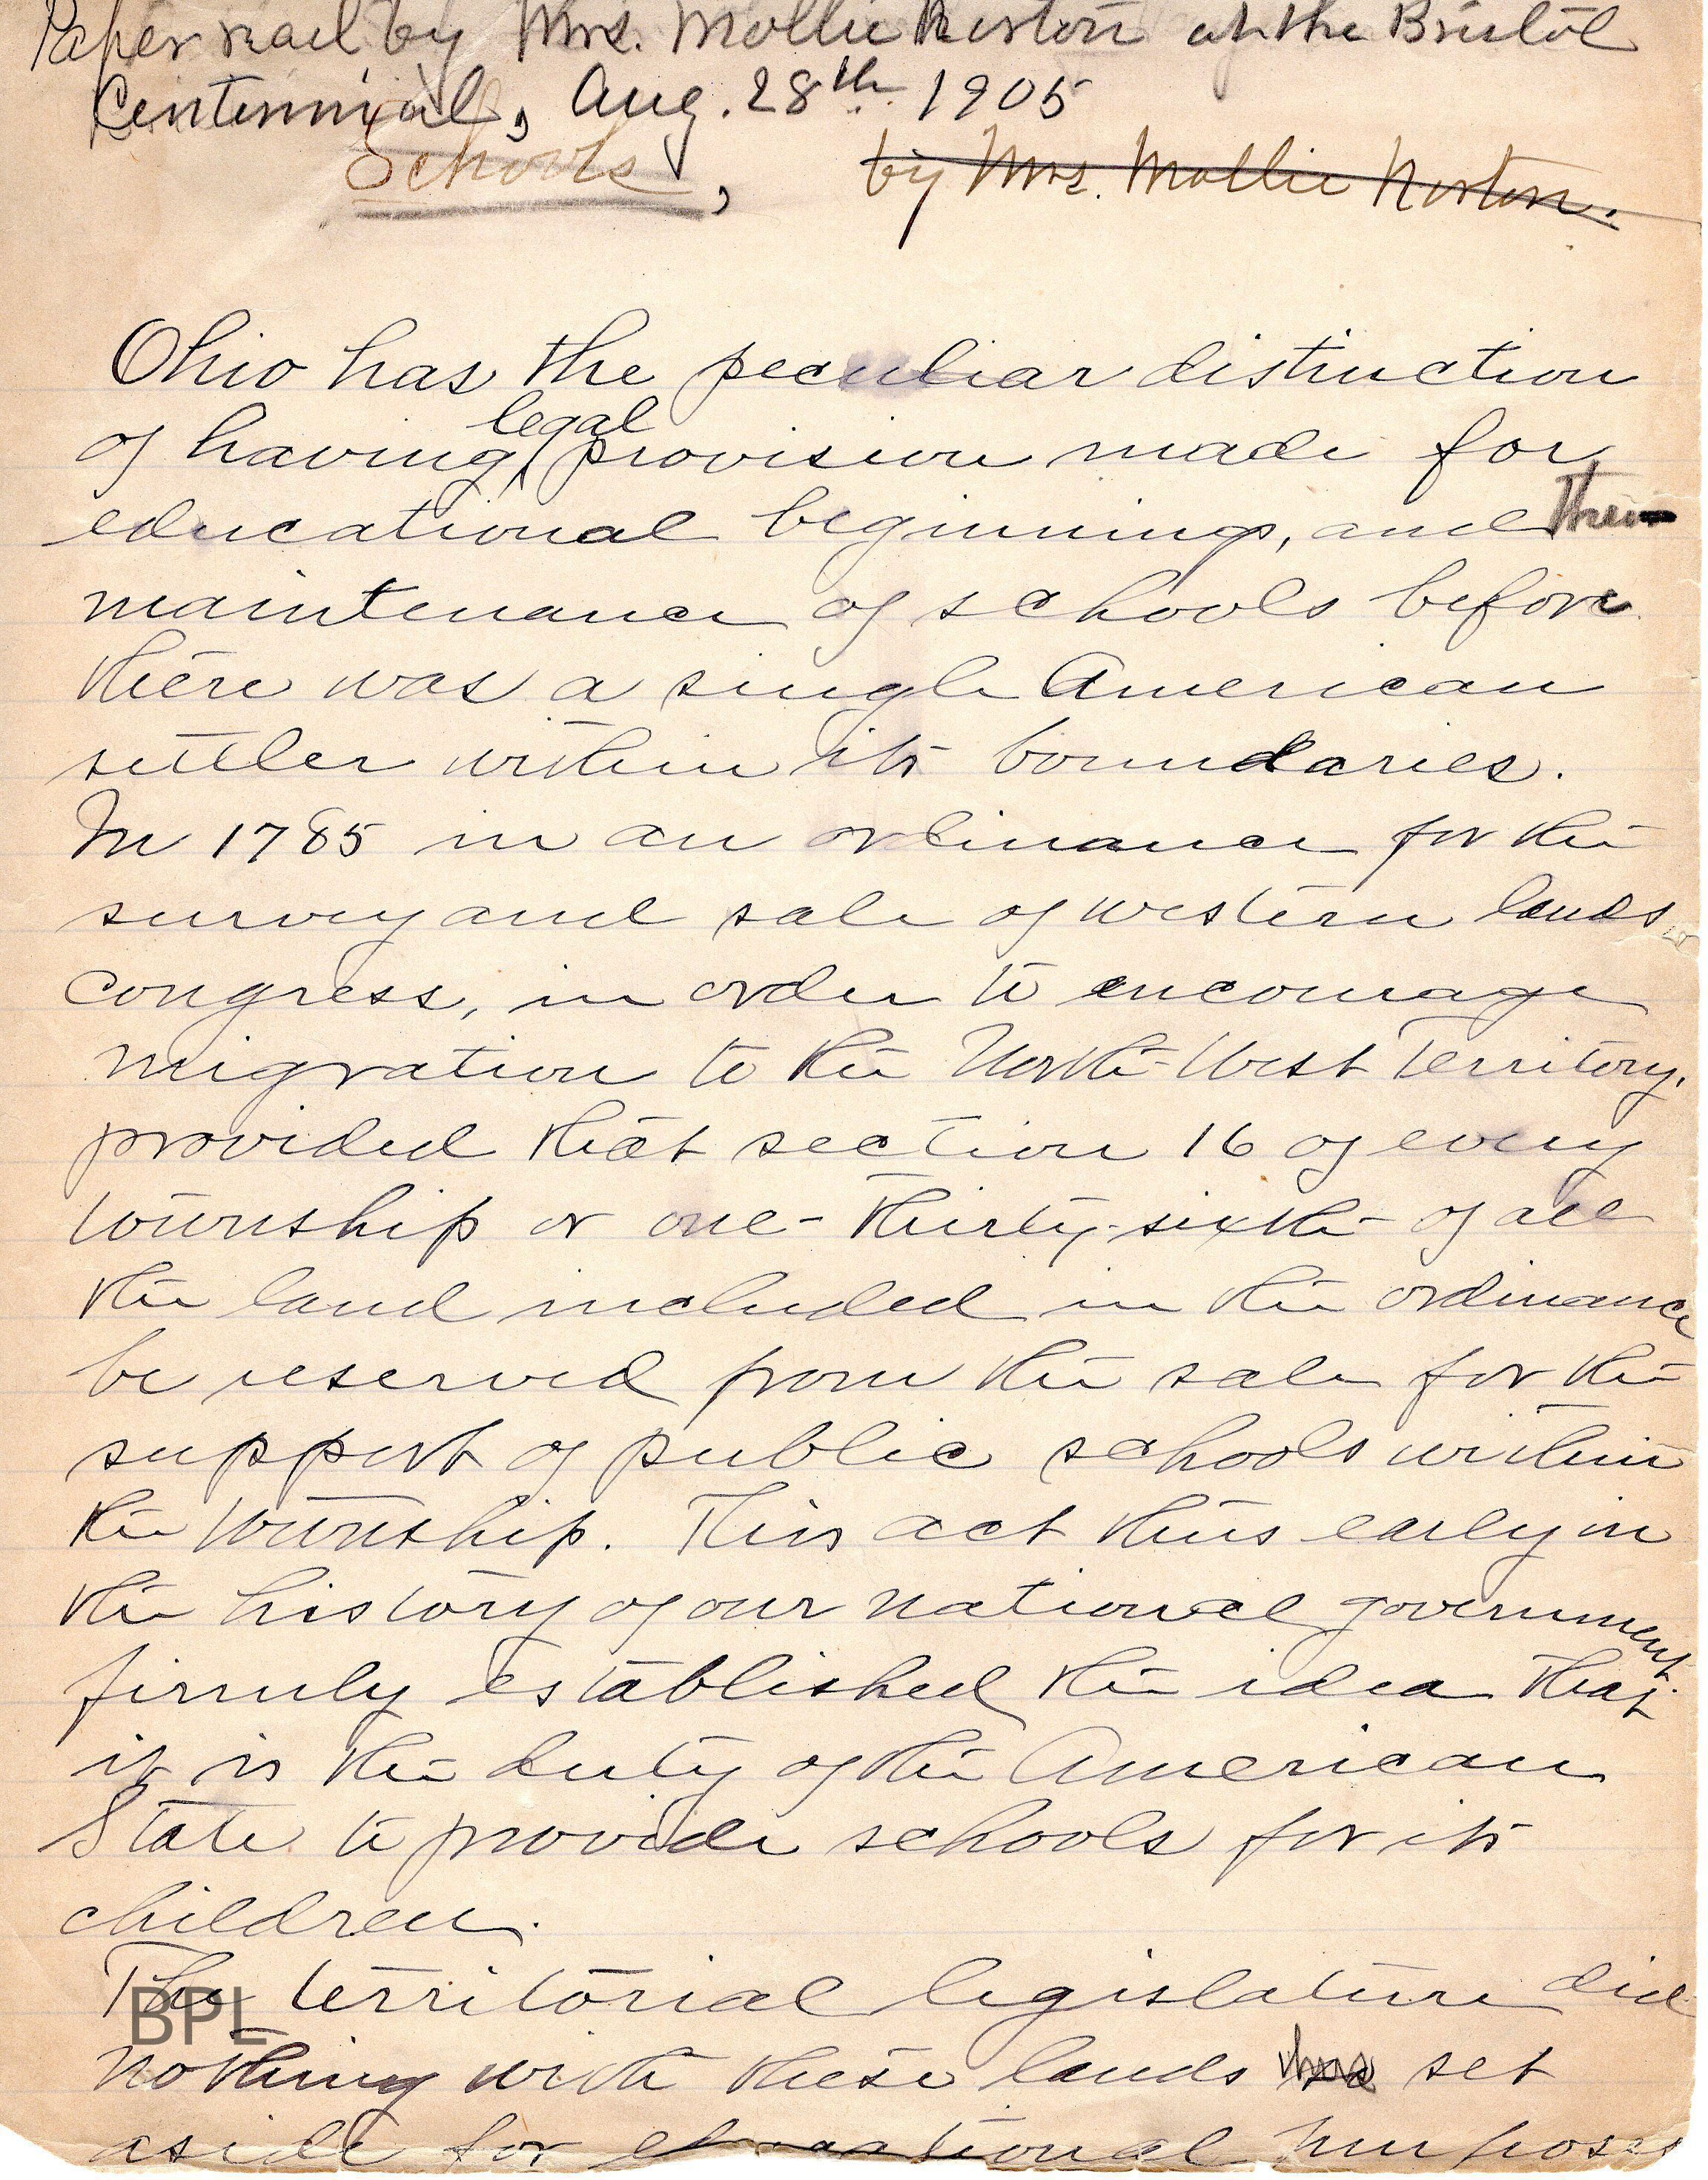 Paper read by Mrs. Mollie Norton at the Bristol
Centennial, Aug. 28th 1905
Schools,
by Mrs. Mollie Norton.
Ohio has the peculiar distinction
legal
of having provision made for
educational beginnings, and the
maintenance of schools before
there was a single American
settler within its boundaries.
In 1785 in an ordinance for the
survey and sale of western lands,
congress, in order to encourage
migration to the North-West Territory,
provided that section 16 of every
township or one-thirty-sixth of all
the land included in the ordinance
be reserved from the sale for the
support of public schools within
the township. This act thus early in
the history of our national government
firmly established the idea that
it is the duty of the American
State to provide schools for its
children.
The territorial legislature did
nothing with these lands set
aside for educational purposes
BPL